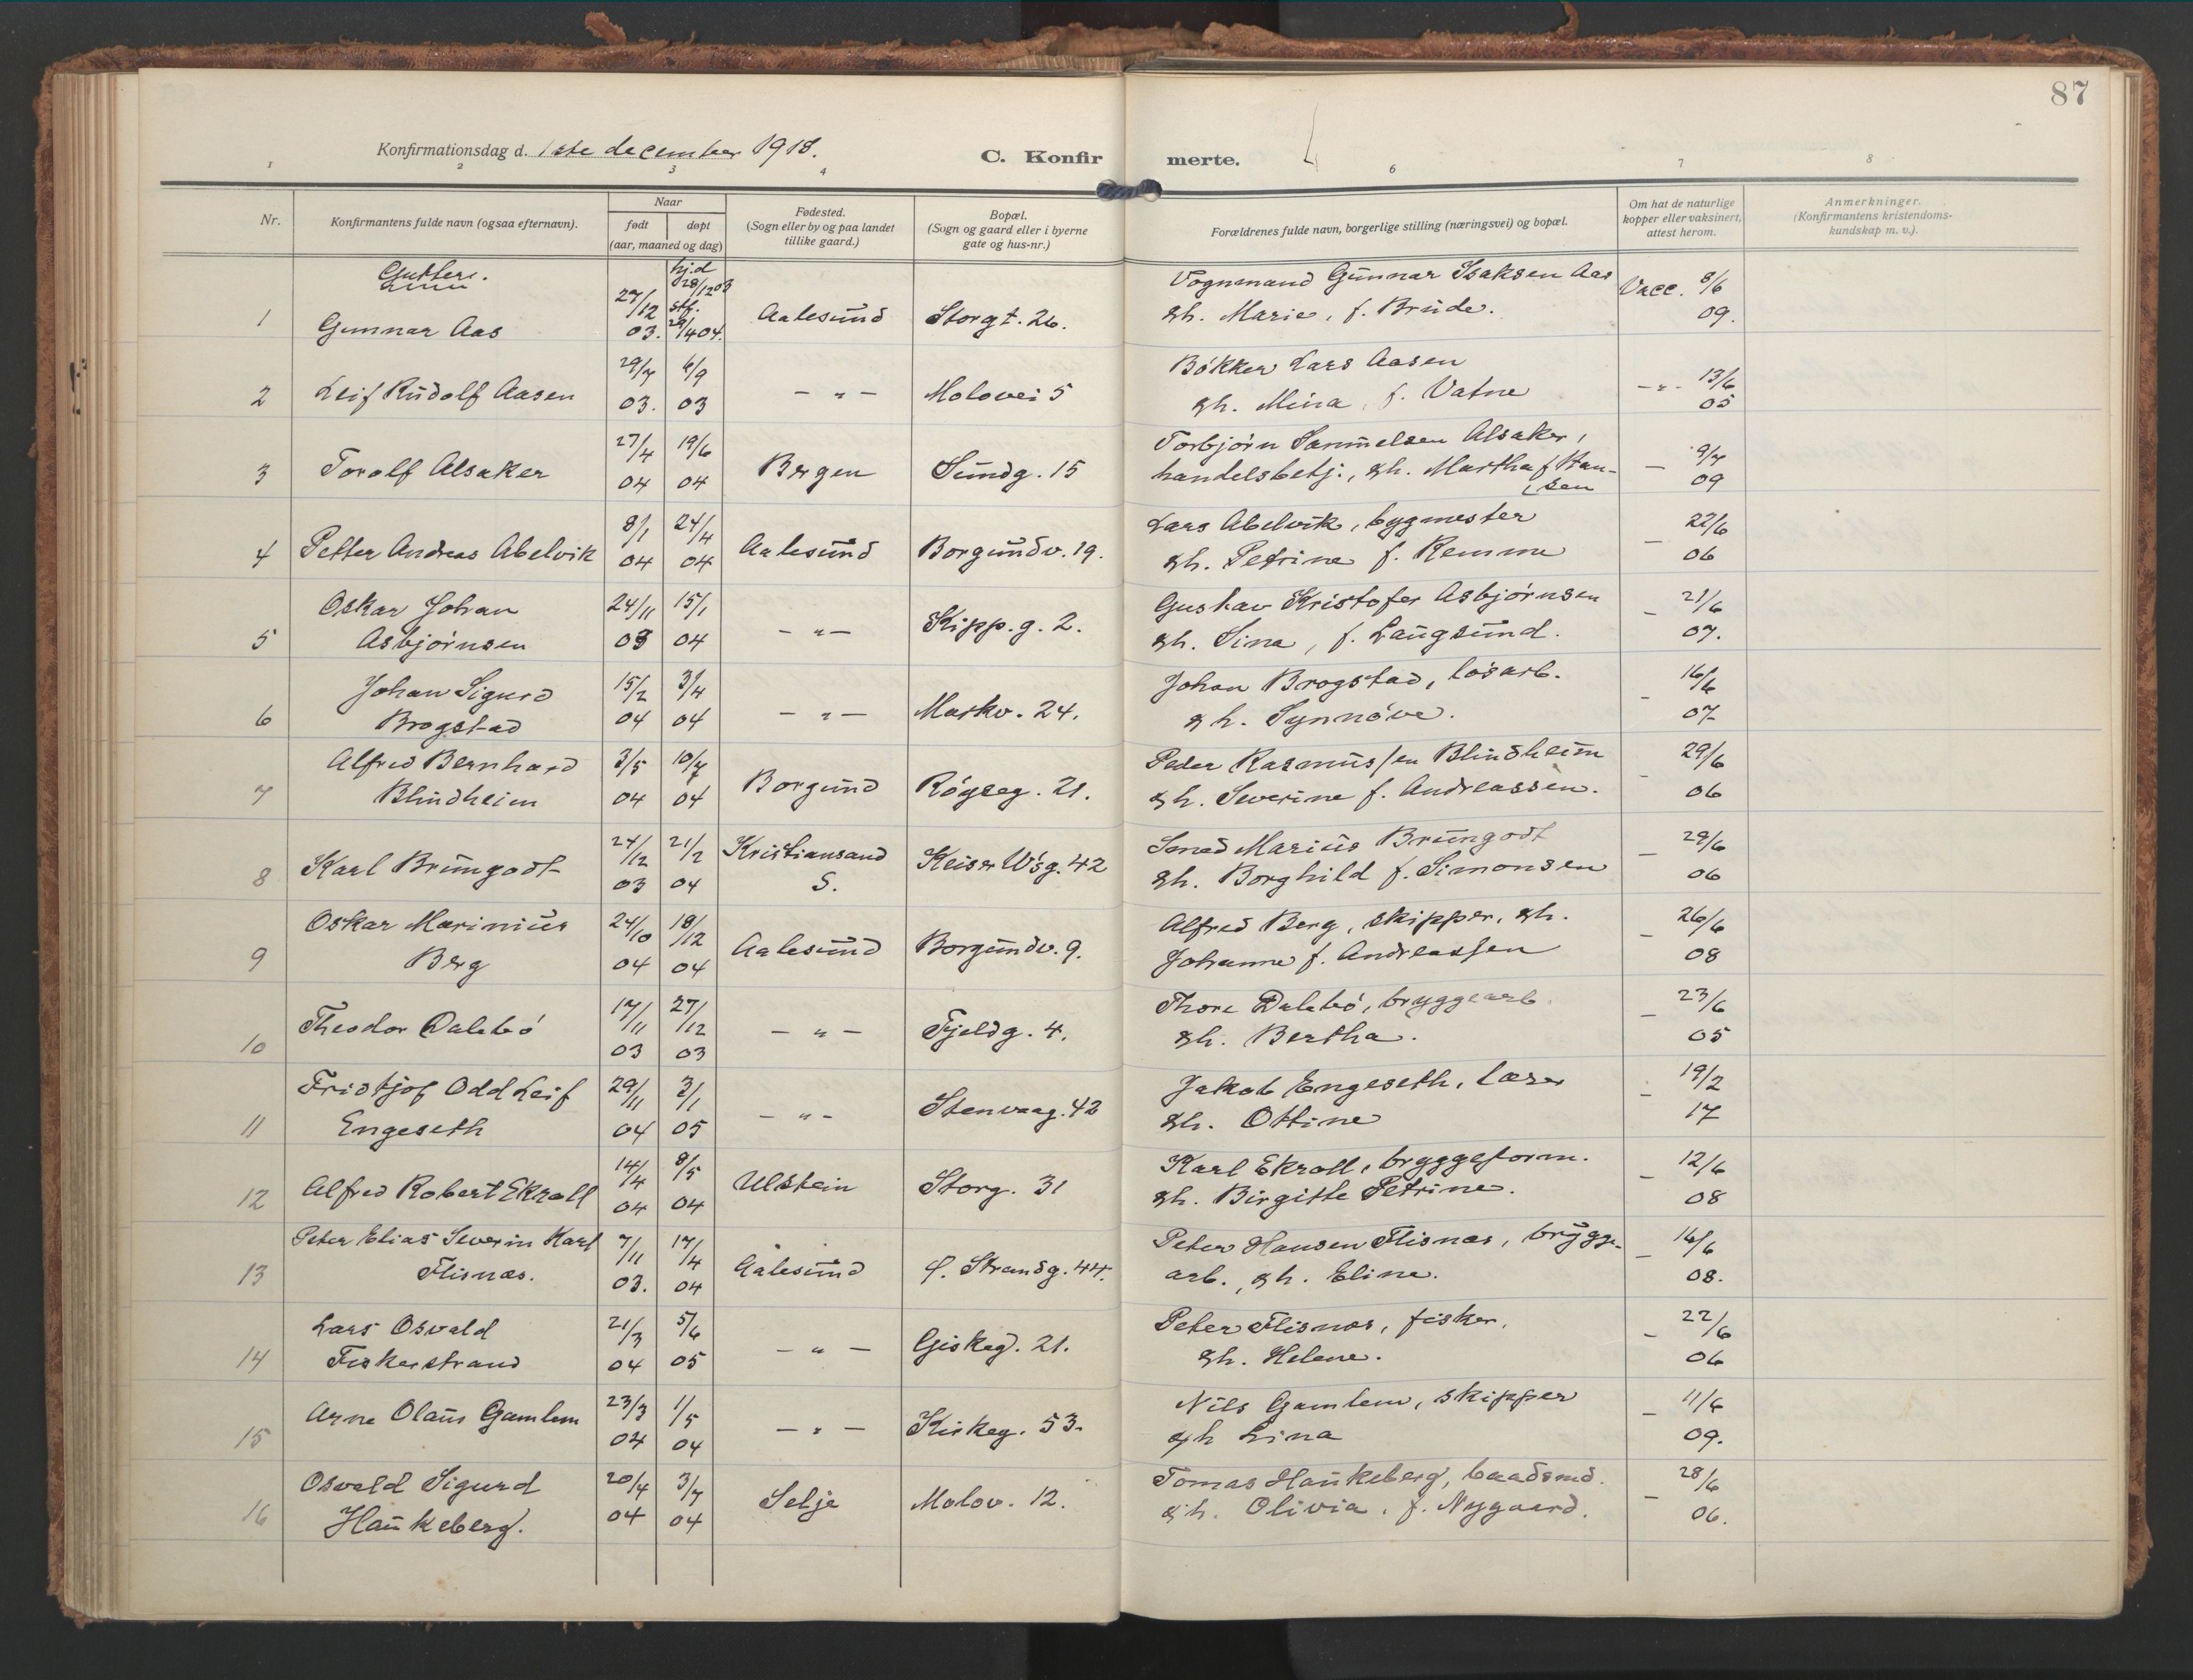 87
Konfirmationsdag d. 1ste december 1918.
C. Konfirmerte.
1 2 3 4 6 7 8
Nr.
Konfirmantens fulde navn (ogsaa efternavn).
Naar
født døpt
(aar, maaned og dag)
Fødested.
(Sogn eller by og paa landet
tillike gaard.)
Bopæl.
(Sogn og gaard eller i byerne
gate og hus-nr.)
Forældrenes fulde navn, borgerlige stilling (næringsvei) og bopæl.
Om hat de naturlige
kopper eller vaksinert,
attest herom.
Anmerkninger.
(Konfirmantens kristendoms-
kundskap m. v.).
Gutter.
hj.d 28/12 03 Vognmand Gunnar Isaksen Aas Vacc. 8/6
1 Gunnar Aas 27/12 03. stf. 29/4 04. Aalesund Storgt. 26. gh. Marie, f. Brude. 09.
29/7 6/9 Bøkker Lars Aasen 13/6
2 Leif Rudolf Aasen 03. 03 — „ — Molovei 5 gh. Mina, f. Vatne — „ - 05
27/4 19/6 Torbjørn Samuelsen Alsaker, 9/7
3 Torolf Alsaker 04 04 Bergen Sundg. 15 handelsbetj., gh. Martha f. Han- — 09
sen
8/1 24/4 Lars Abelvik, bygmester 22/6
4 Petter Andreas Abelvik 04 04 Aalesund Borgundv. 19. gh. Petrine f. Remme — 06
Oskar Johan 24/11 15/1 Gustav Kristofer Asbjørnsen 21/6
5 Asbjørnsen 03 04 — „ — Kipp.g. 2. gh. Sina, f. Langsund. — 07.
Johan Sigurd 15/2 3/4 Johan Brogstad, løsarb. 16/6
6 Brogstad 04 04 — „ — Markv. 24. gh. Synnøve. — 07
Alfred Bernhard 3/5 10/7 Peder Rasmussen Blindheim 29/6
7 Blindheim 04 04 Borgund Røyseg. 21. gh. Severine f. Andreassen. - 06
24/12 21/2 Kristiansand Smed Marius Brungodt 29/6
8 Karl Brungodt 03 04 S. Keiser W's g. 42 gh. Borghild f. Simonsen — 06
Oskar Marinius 24/10 18/12 Alfred Berg, skipper, gh. 26/6
9 Berg 04 04 Aalesund Borgundv. 9. Johanne f. Andreassen — 08
17/11 27/12 Thore Dalebø, bryggearb. 23/6
10 Theodor Dalebø 03 03 — „ — Fjeldg. 4. gh. Bertha. — 05
Fridtjof Odd Leif 29/11 3/1 Jakob Engeseth, lærer 19/2
11 Engeseth 04 05 — „ - Stenvaag. 42 gh. Ottine — 17
14/4 8/5 Karl Ekroll, bryggeform. 12/6
12 Alfred Robert Ekroll 04 04 Ulstein Storg. 31 gh. Birgitte Petrine. — 08
Peter Elias Severin Karl 7/11 17/4 Peter Hansen Flisnæs, brygge- 16/6
13 Flisnæs. 03. 04 Aalesund f. Strandg. 44. arb., gh. Eline. — 08.
Lars Osvald 21/3 5/6 Peter Flisnæs, fisker, 22/6
14 Fiskerstrand 04 05 — „ — Giskeg. 21. gh. Helene. — 06
Arne Olaus Gamlem 23/3 1/5 Nils Gamlem, skipper 11/6
15 04 04 — „ — Kirkeg. 53. gh Lina — 09.
Osvald Sigurd 20/4 3/7 Tomas Haukeberg, baadsmd. 28/6
16 Haukeberg. 04 04 Selje Molov. 12. gh. Olivia, f. Nygaard. — 06.